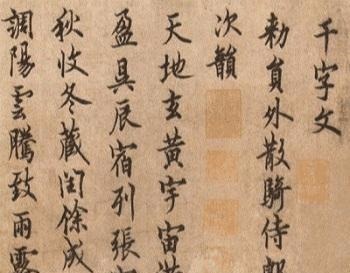 千字文
勑員外散騎侍郎
次韻
天地玄黃宇宙洪
盈昃辰宿列張
秋收冬藏閏餘成
調陽雲騰致雨露